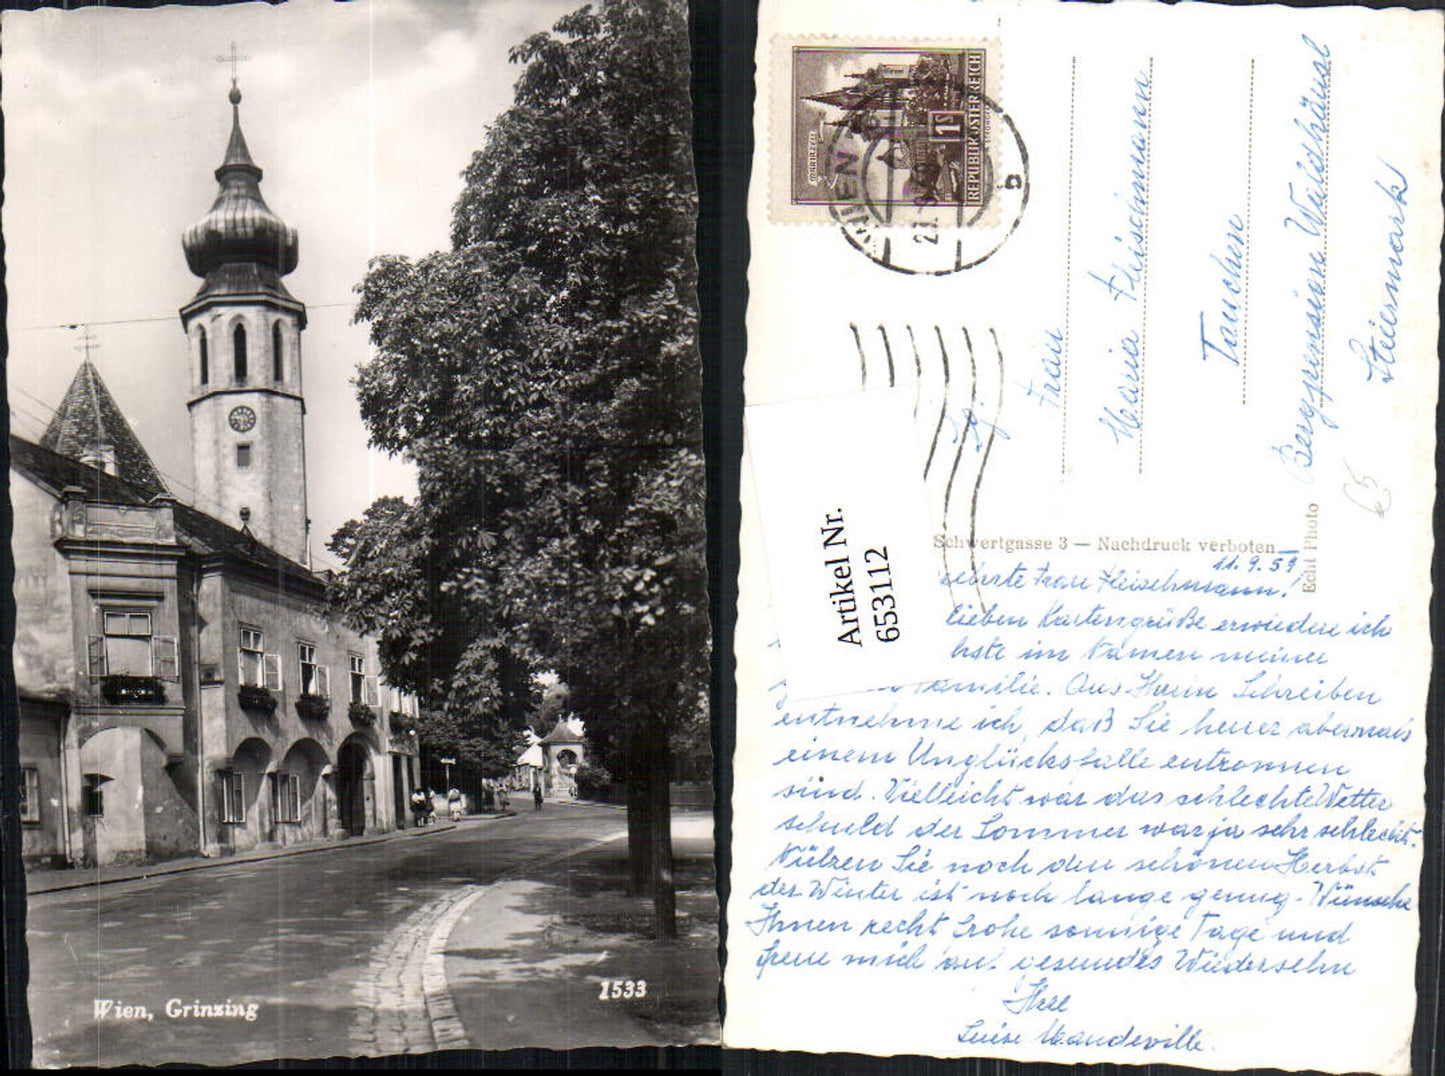 Wien, Grinzing
1533
MARIAZELL
1S
REPUBLIK ÖSTERREICH
WIEN
b
Artikel Nr.
653112
Frau
Maria Fleischmann
Tauchen
Bergpension Waldhäusl
Steiermark
65
Schwertgasse 3 — Nachdruck verboten
Echt Photo
11.9.59
ehrte Frau Fleischmann!
lieben Kartengrüße erwiedere ich
hste im Namen meiner
Familie. Aus Ihrem Schreiben
entnehme ich, daß Sie heuer abermals
einem Unglücksfalle entronnen
sind. Vielleicht war das schlechte Wetter
schuld der Sommer war ja sehr schlecht.
Nützen Sie noch den schönen Herbst
der Winter ist noch lange genug. Wünsche
Ihnen recht frohe sonnige Tage und
freue mich auf gesundes Wiedersehn
Ihre
Luise Mandeville.